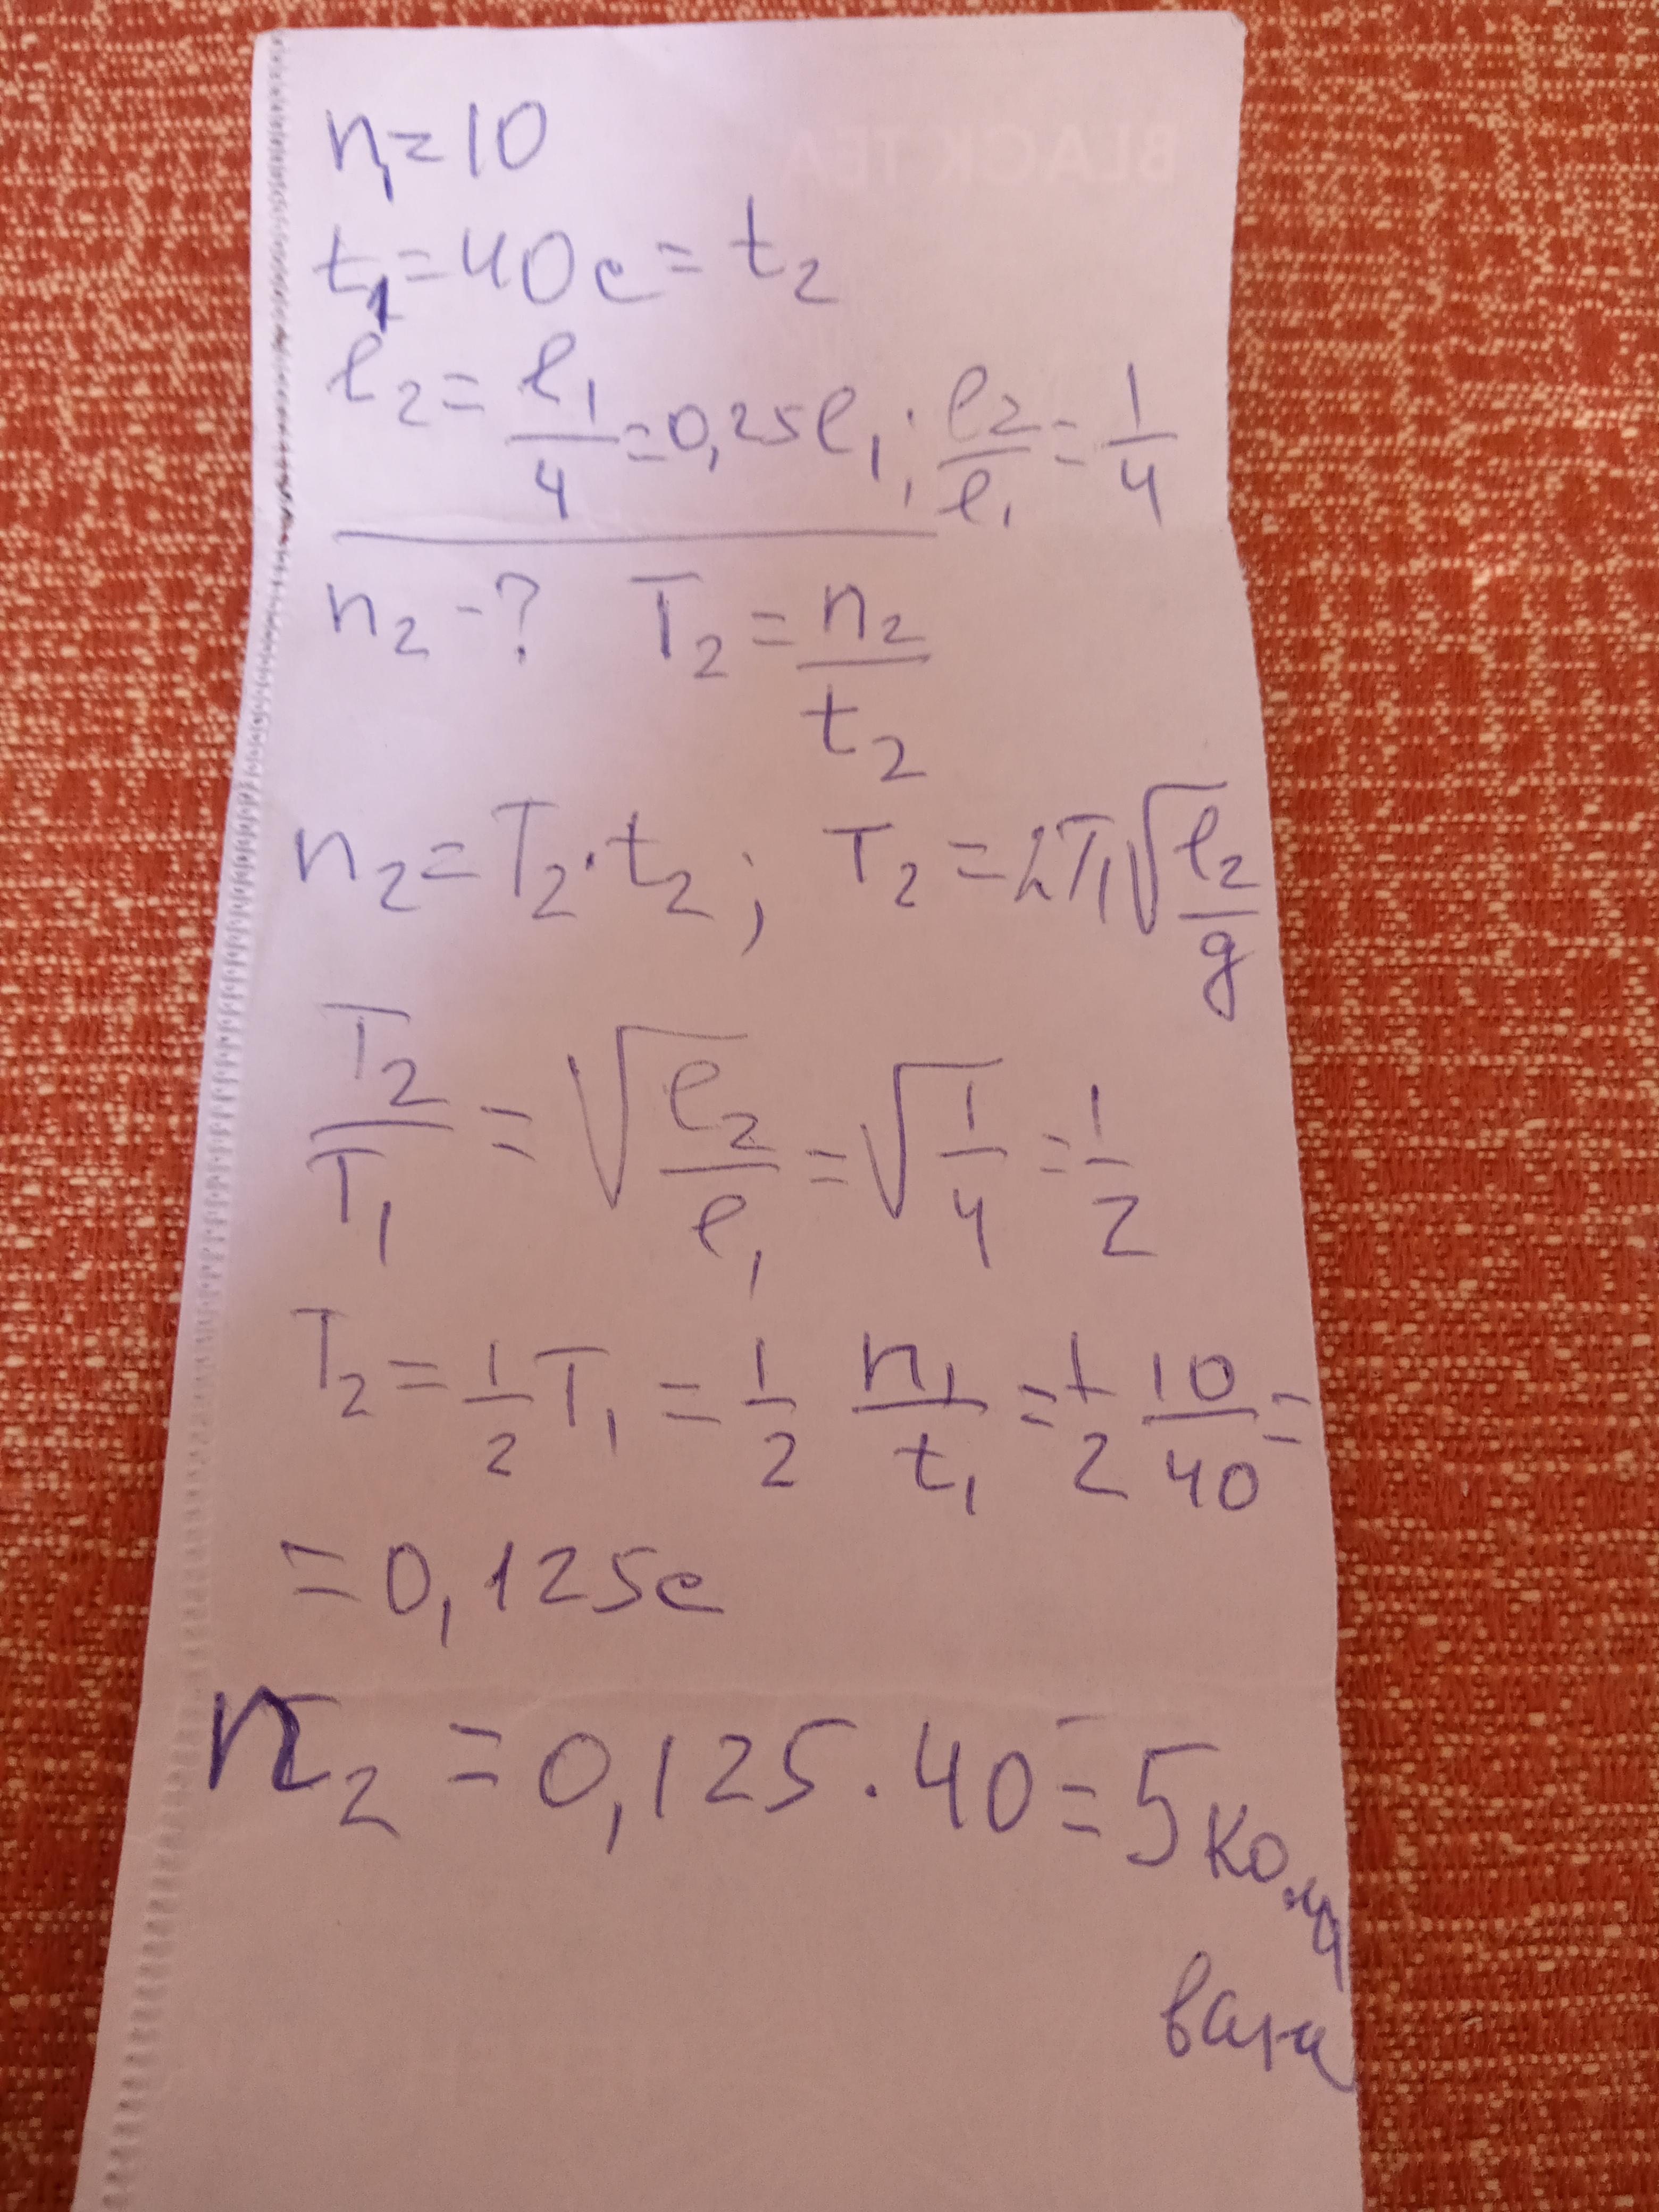 BLACK TEA
n₁=10
t₁=40c=t₂
l₂=l₁/4=0,25l₁; l₂/l₁=1/4
n₂-? T₂=n₂/t₂
n₂=T₂·t₂; T₂=2π√(l₂/g)
T₂/T₁=√(l₂/l₁)=√(1/4)=1/2
T₂=1/2 T₁=1/2 n₁/t₁=1/2 10/40=
=0,125c
n₂=0,125·40=5